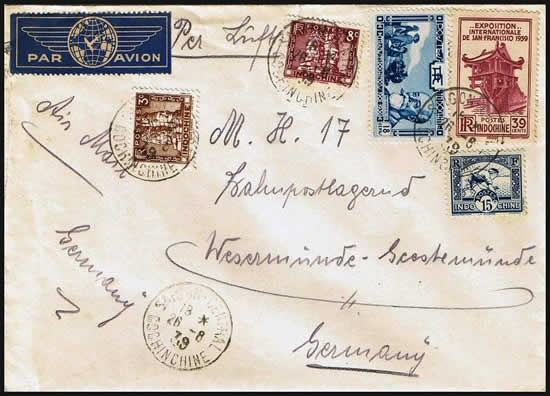 PAR AVION
Per Luft
8c
POSTES
INDOCHINE
RF
18
INDOCHINE
EXPOSITION
INTERNATIONALE
DE SAN-FRANCISCO 1939
RF
POSTES
INDOCHINE
39 CENTS
3c
POSTES
Air Mail
COCHINCHINE
M. H. 17
Bahnpostlagernd
RF
INDOCHINE
15c
Wesermünde-Geestemünde
Germany
SAIGON-CENTRAL
18 *
26-8
39
COCHINCHINE
Germany